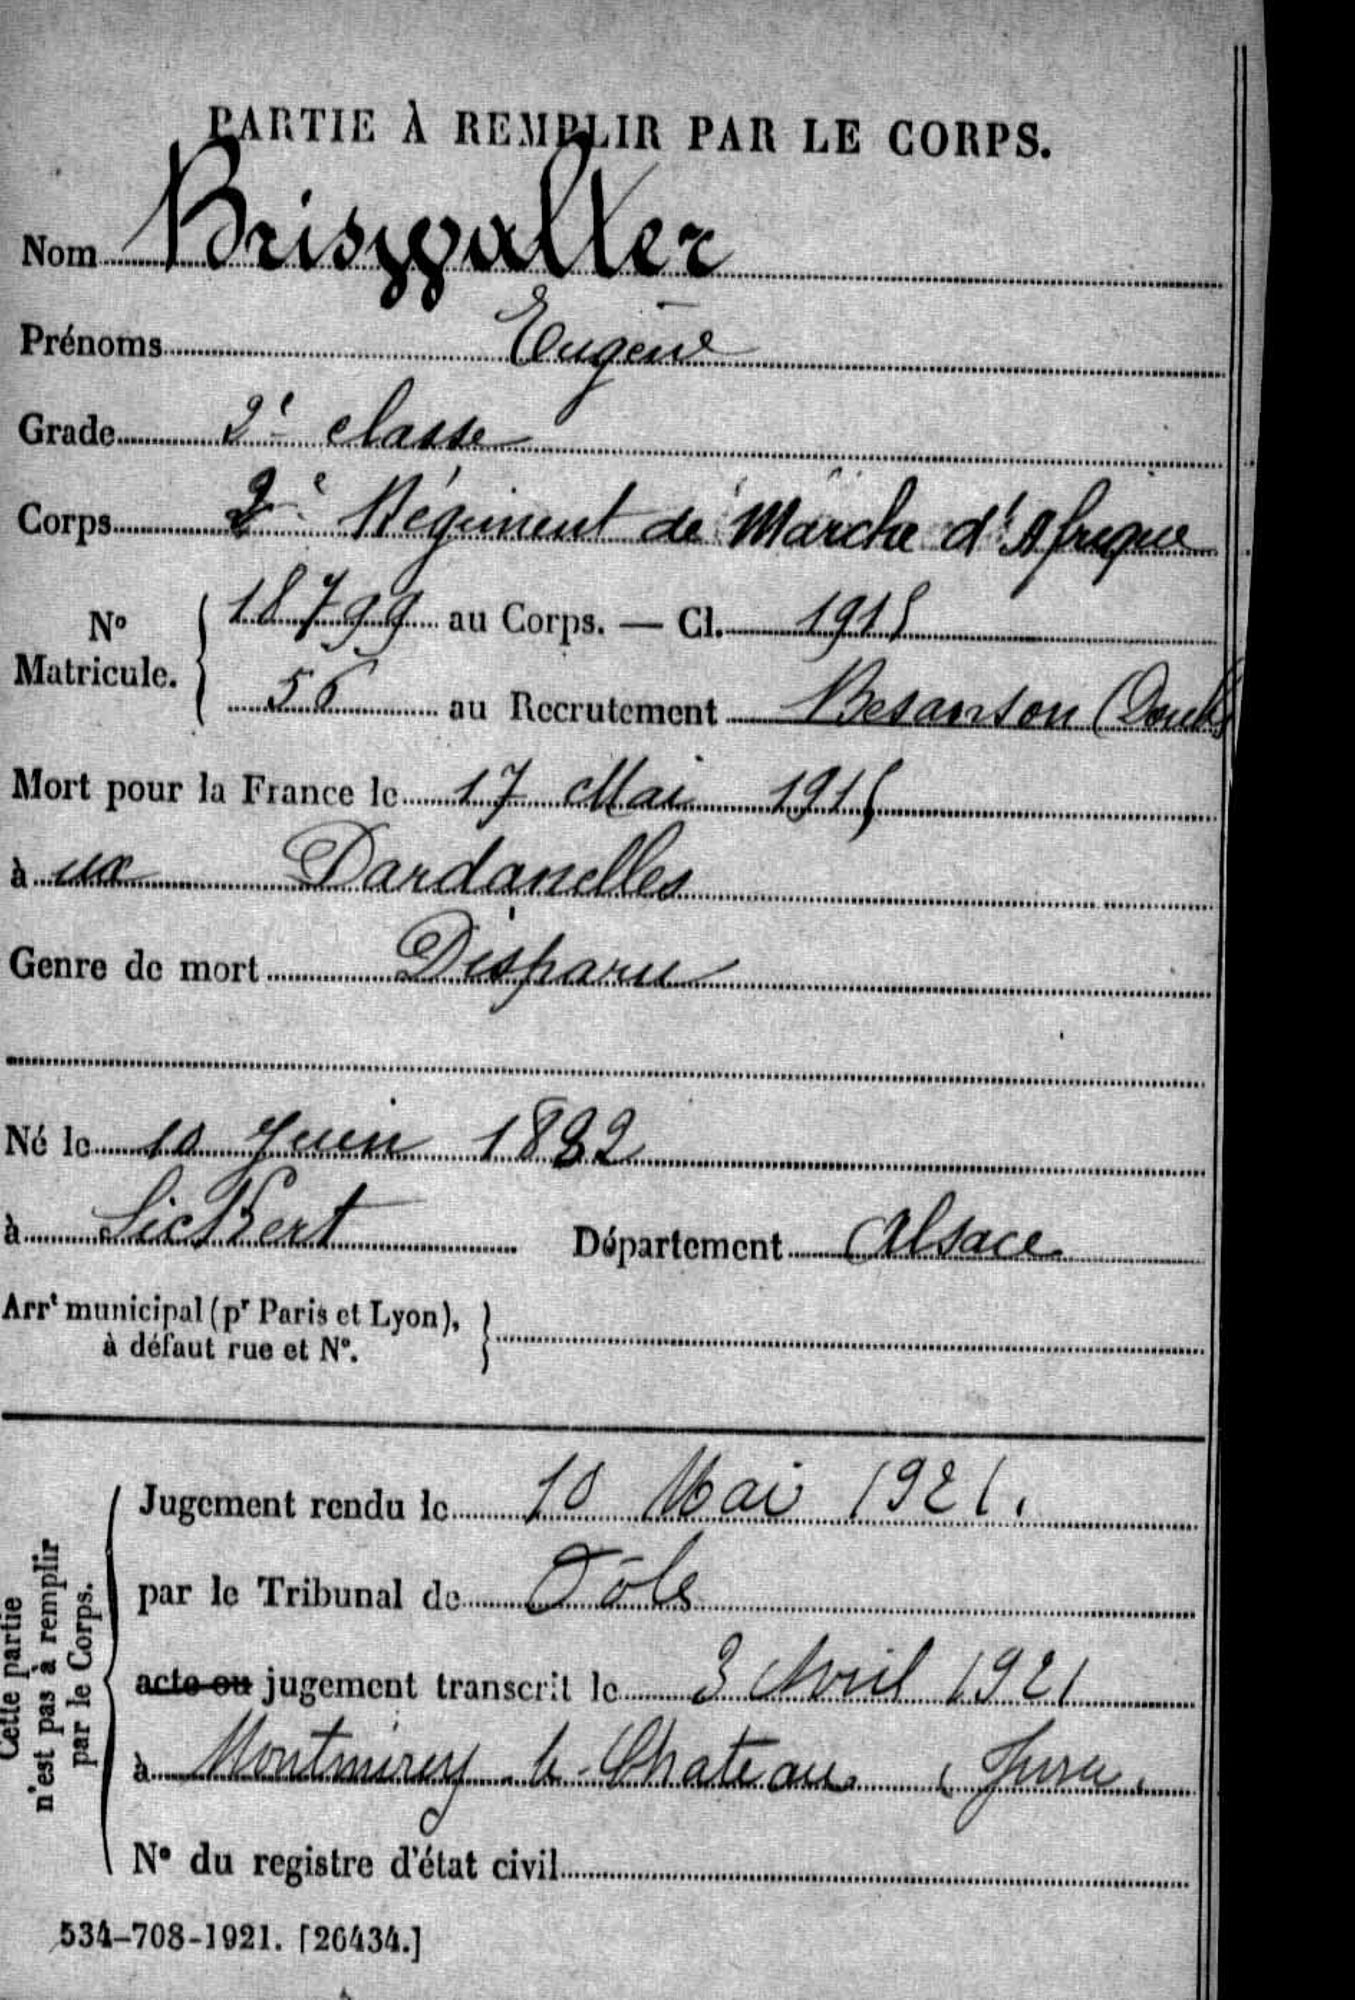 PARTIE À REMPLIR PAR LE CORPS.
Nom Brisgvalter
Prénoms Eugène
Grade 2e classe
Corps 2e Régiment de Marche d'Afrique
No Matricule. { 18799 au Corps. — Cl. 1915
56 au Recrutement Besanson (Doubs)
Mort pour la France le 17 Mai 1915
à ux Dardanelles
Genre de mort Disparu
Né le 10 Juin 1882
à Département Alsace
Arrt municipal (pr Paris et Lyon), à défaut rue et No. }
Cette partie n'est pas à remplir par le Corps. {
Jugement rendu le 10 Mai 1921.
par le Tribunal de Dôle
acte ou jugement transcrit le 3 Avril 1921
à Montmirey-le-Chateau (Jura.
No du registre d'état civil
534-708-1921. [26434.]